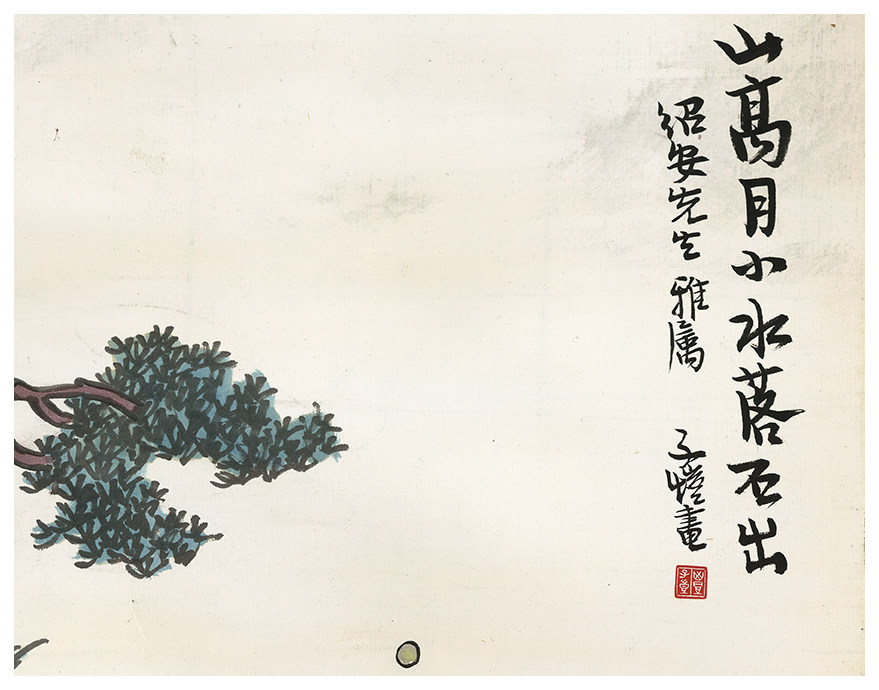 山高月小水落石出
绍安先生 雅属
子愷畫